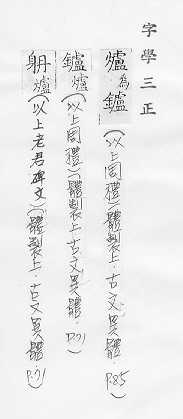 字學三正
爐為鑪(以上周禮)(體製上·古文異體·P.85
鑪爐(以上周禮)(體製上·古文異體·P.71)
爐(以上老君碑文)(體製上·古文異體P.71)